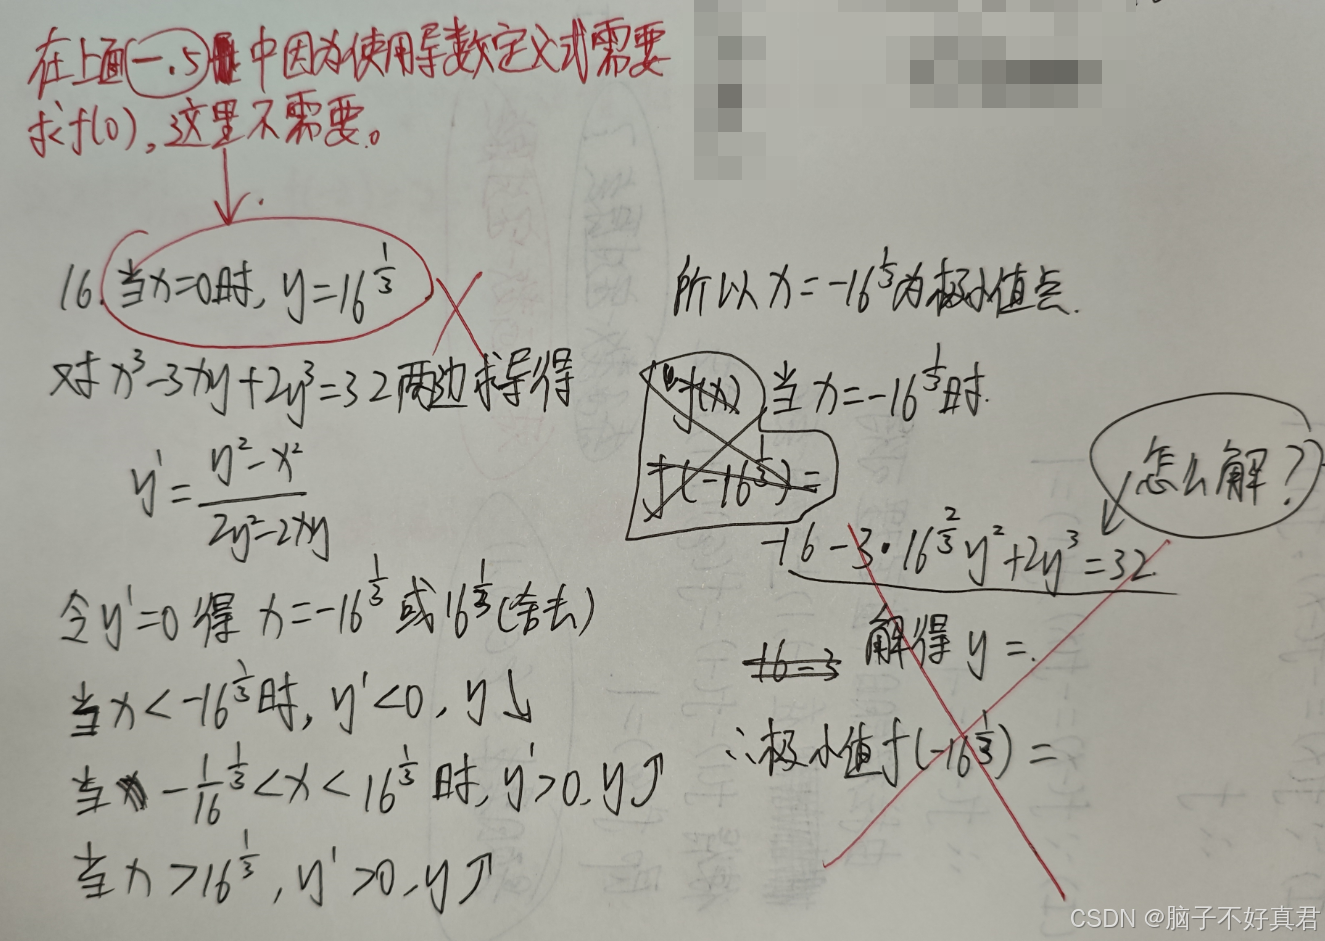 在上面(一.5)中因为使用导数定义式需要
求f(0),这里不需要。
16. 当x=0时, y=16^{1/3}
对x³-3xy+2y³=32两边求导得
y'=\frac{y²-x²}{2y²-2xy}
令y'=0得 x=-16^{1/3}或16^{1/3}(舍去)
当x<-16^{1/3}时, y'<0, y↓
当 -\frac{1}{16}^{1/3}<x<16^{1/3}时, y'>0, y↗
当x>16^{1/3}, y'>0, y↗
所以x=-16^{1/3}为极小值点.
f(x) 当x=-16^{1/3}时.
f(-16^{1/3})=
怎么解?
-16-3·16^{2/3}y²+2y³=32.
16=3 解得y=.
∴极小值f(-16^{1/3})=
CSDN @脑子不好真君